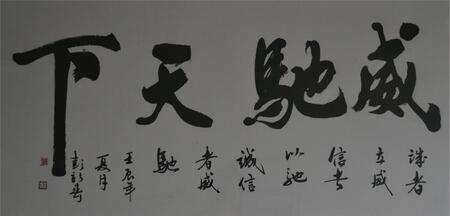 威馳天下
诚者
立威
信者
以馳
诚信
者威
馳
壬辰年
夏月